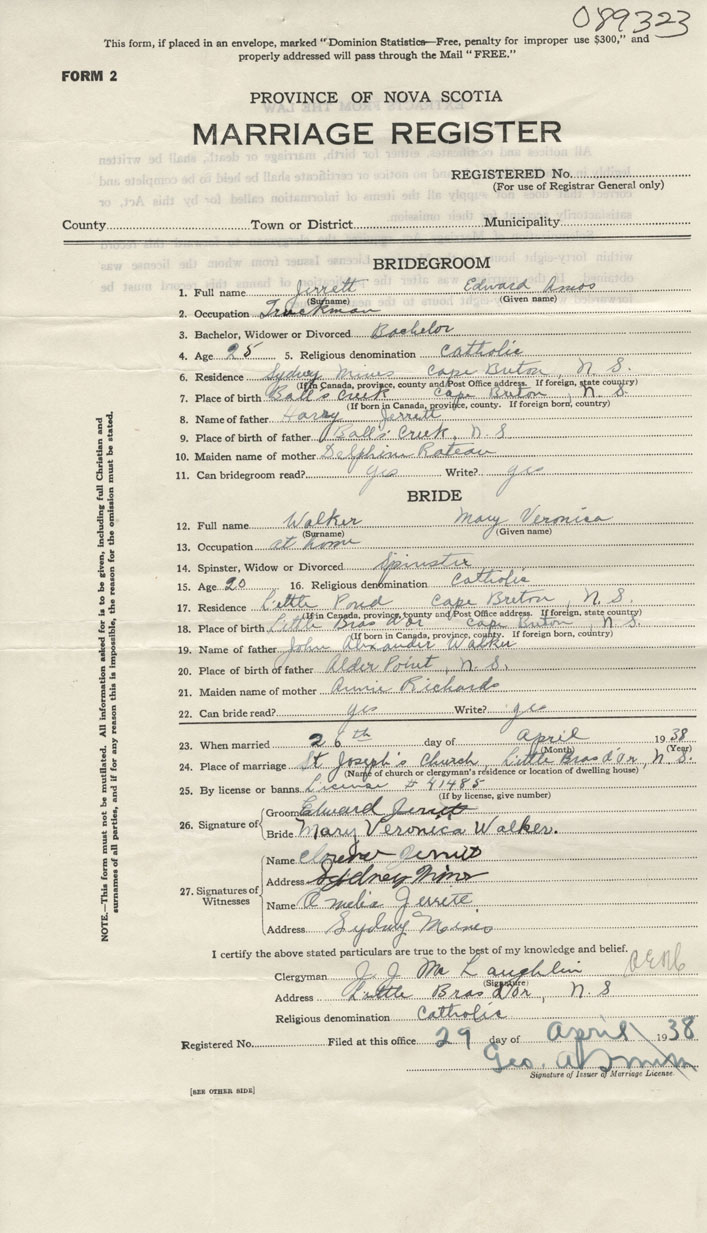 089323
This form, if placed in an envelope, marked "Dominion Statistics—Free, penalty for improper use $300," and
properly addressed will pass through the Mail "FREE."
FORM 2
PROVINCE OF NOVA SCOTIA
MARRIAGE REGISTER
REGISTERED No.
(For use of Registrar General only)
County Town or District Municipality
BRIDEGROOM
1. Full name Jerrett Edward Amos
(Surname) (Given name)
2. Occupation Truckman
3. Bachelor, Widower or Divorced Bachelor
4. Age 25 5. Religious denomination Catholic
6. Residence Sydney Mines Cape Breton, N. S.
(If in Canada, province, county and Post Office address. If foreign, state country)
7. Place of birth Ball's Creek Cape Breton, N. S.
(If born in Canada, province, county. If foreign born, country)
8. Name of father Harry Jerrett
9. Place of birth of father Ball's Creek, N. S
10. Maiden name of mother Delphine Rateau
11. Can bridegroom read? yes Write? yes
BRIDE
12. Full name Walker Mary Veronica
(Surname) (Given name)
13. Occupation at home
14. Spinster, Widow or Divorced Spinster
15. Age 20 16. Religious denomination Catholic
17. Residence Little Pond Cape Breton, N. S.
(If in Canada, province, county and Post Office address. If foreign, state country)
18. Place of birth Little Bras d'Or Cape Breton, N. S.
(If born in Canada, province, county. If foreign born, country)
19. Name of father John Alexander Walker
20. Place of birth of father Alder Point, N. S.
21. Maiden name of mother Annie Richards
22. Can bride read? yes Write? yes
23. When married 26th day of April 1938
(Month) (Year)
24. Place of marriage St Joseph's Church, Little Bras d'Or, N. S.
(Name of church or clergyman's residence or location of dwelling house)
25. By license or banns License # 41485
(If by license, give number)
26. Signature of Groom Edward Jerrett
Bride Mary Veronica Walker.
27. Signatures of Witnesses
Name
Address Sydney Mines
Name Amelia Jerrett
Address Sydney Mines
I certify the above stated particulars are true to the best of my knowledge and belief.
Clergyman J. J. McLaughlin
(Signature)
Address Little Bras d'Or, N. S
Religious denomination Catholic
Registered No. Filed at this office 29 day of April 1938
Geo. A
Signature of Issuer of Marriage License.
[SEE OTHER SIDE]
NOTE.—This form must not be mutilated. All information asked for is to be given, including full Christian and
surnames of all parties, and if for any reason this is impossible, the reason for the omission must be stated.